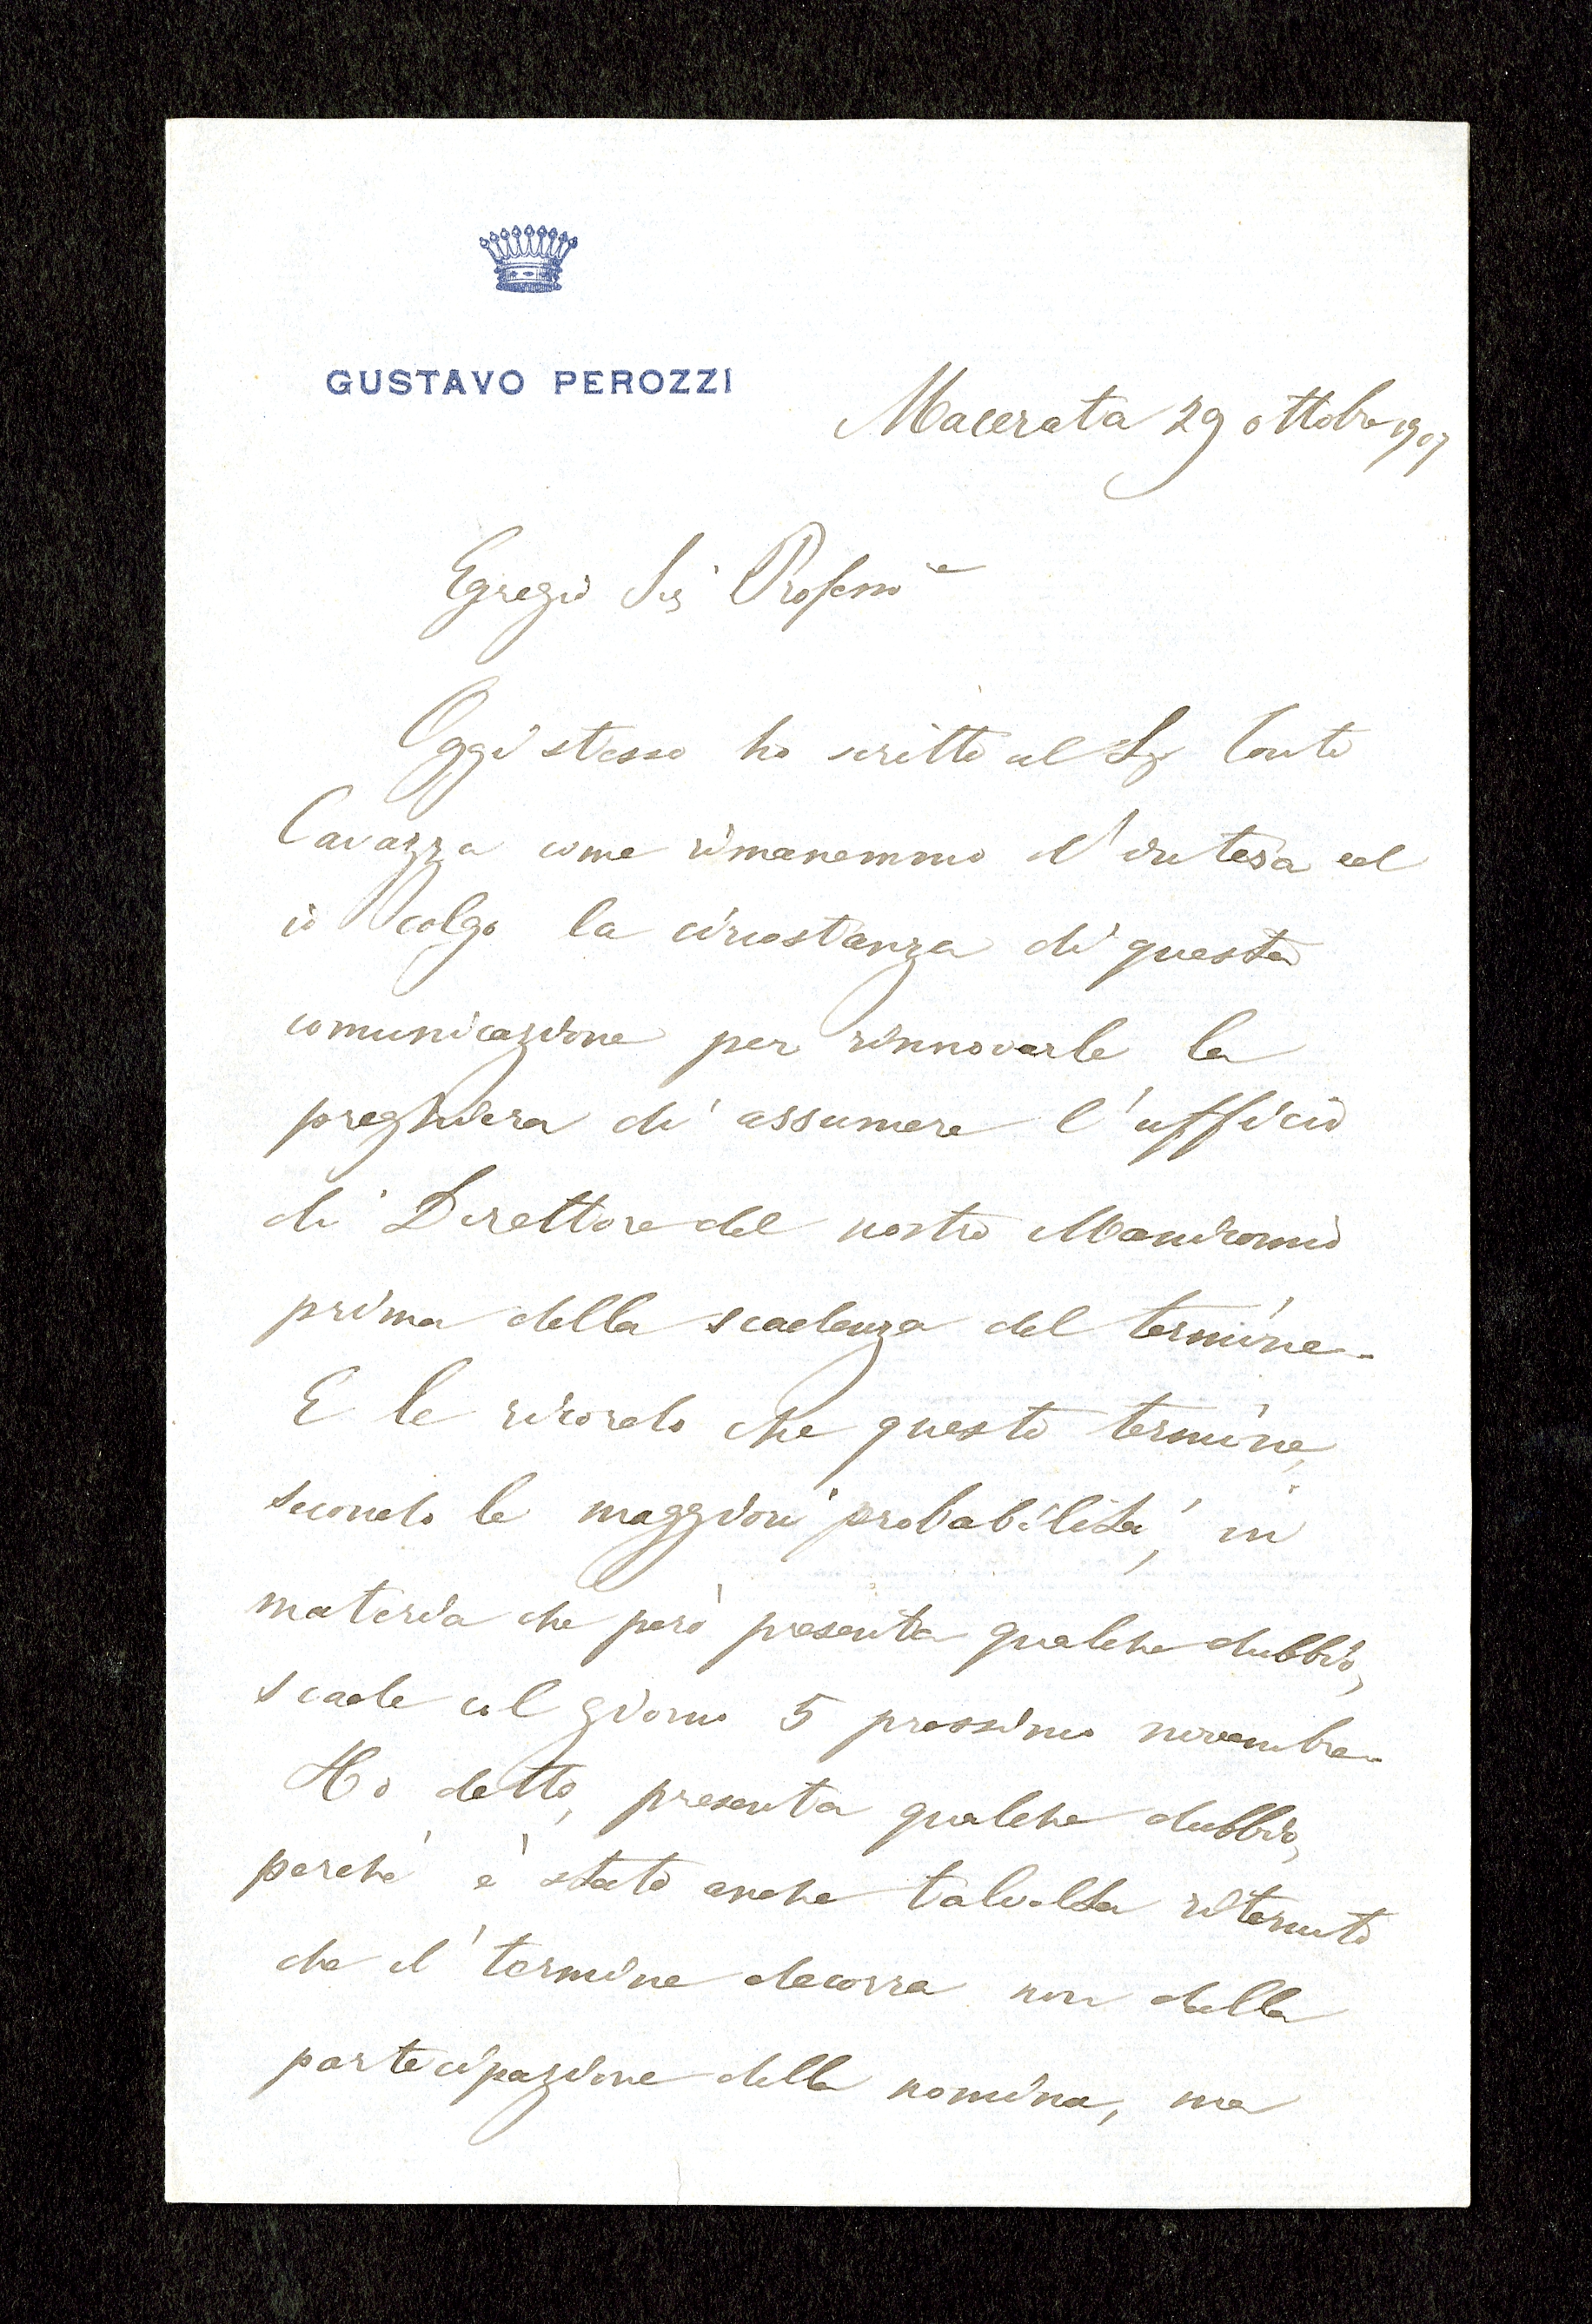 GUSTAVO PEROZZI
Macerata 29 ottobre 1907
Egregio Sig Professore
Oggi stesso ho scritto al Sig Conte
Cavazza come rimanemmo d'intesa ed
io colgo la circostanza di questa
comunicazione per rinnovarle la
preghiera di assumere l'ufficio
di Direttore del nostro Manicomio
prima della scadenza del termine.
E le ricordo che questo termine,
secondo le maggiori probabilità, in
materia che però presenta qualche dubbio,
scade col giorno 5 prossimo novembre.
Ho detto, presenta qualche dubbio,
perché è stato anche talvolta ritenuto
che il termine decorra non dalla
partecipazione della nomina, ma